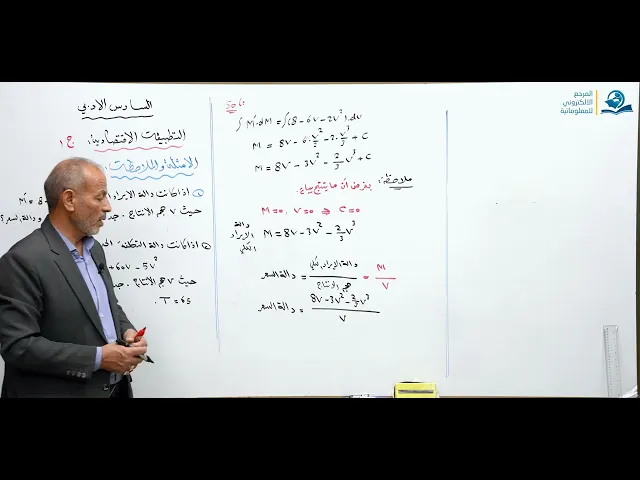 السادس الادبي
التطبيقات الاقتصادية ج١
الامثلة والملاحظات
① اذا كانت دالة الايراد M′ = 8
حيث V حجم الانتاج . جد و دالة السعر؟
② اذا كانت دالة التكلفة
+ 60V - 5V²
حيث V حجم الانتاج . جد
T = 65 .
Sol
∫ M′.dM = ∫(8 - 6V - 2V²).dV
M = 8V - 6.V²/2 - 2.V³/3 + C
M = 8V - 3V² - 2/3 V³ + C
ملاحظة: بفرض أن ما ينتج يباع.
M=0, V=0 ⇒ C=0
دالة الايراد الكلي M = 8V - 3V² - 2/3 V³
دالة السعر = دالة الايراد الكلي / حجم الانتاج = M / V
دالة السعر = 8V - 3V² - 2/3 V³ / V
المرجع
الالكتروني
للمعلوماتية